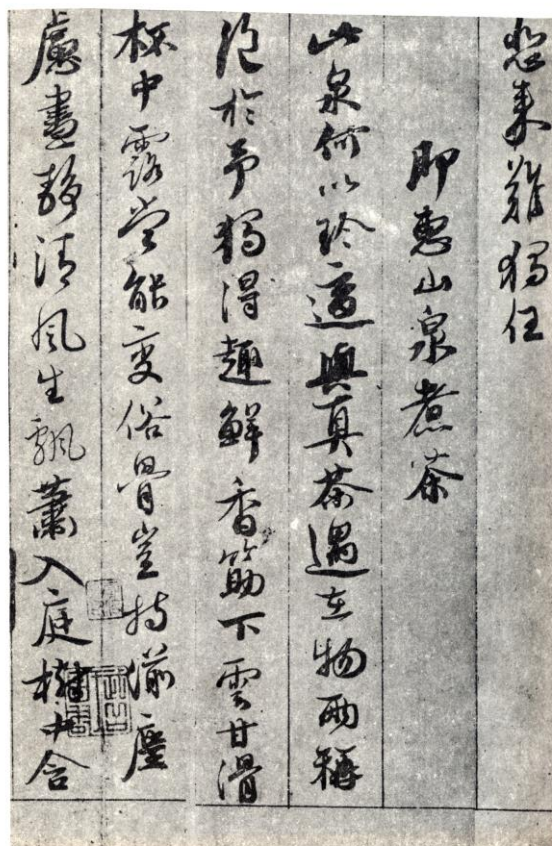 来難獨任
即惠山泉煮茶
此泉何以珎適與真茶遇在物兩稱
絕於予獨得趣鮮香筯下雲甘滑
杯中露當能变俗骨豈特湔塵
慮晝静清風生飄蕭入庭樹中含